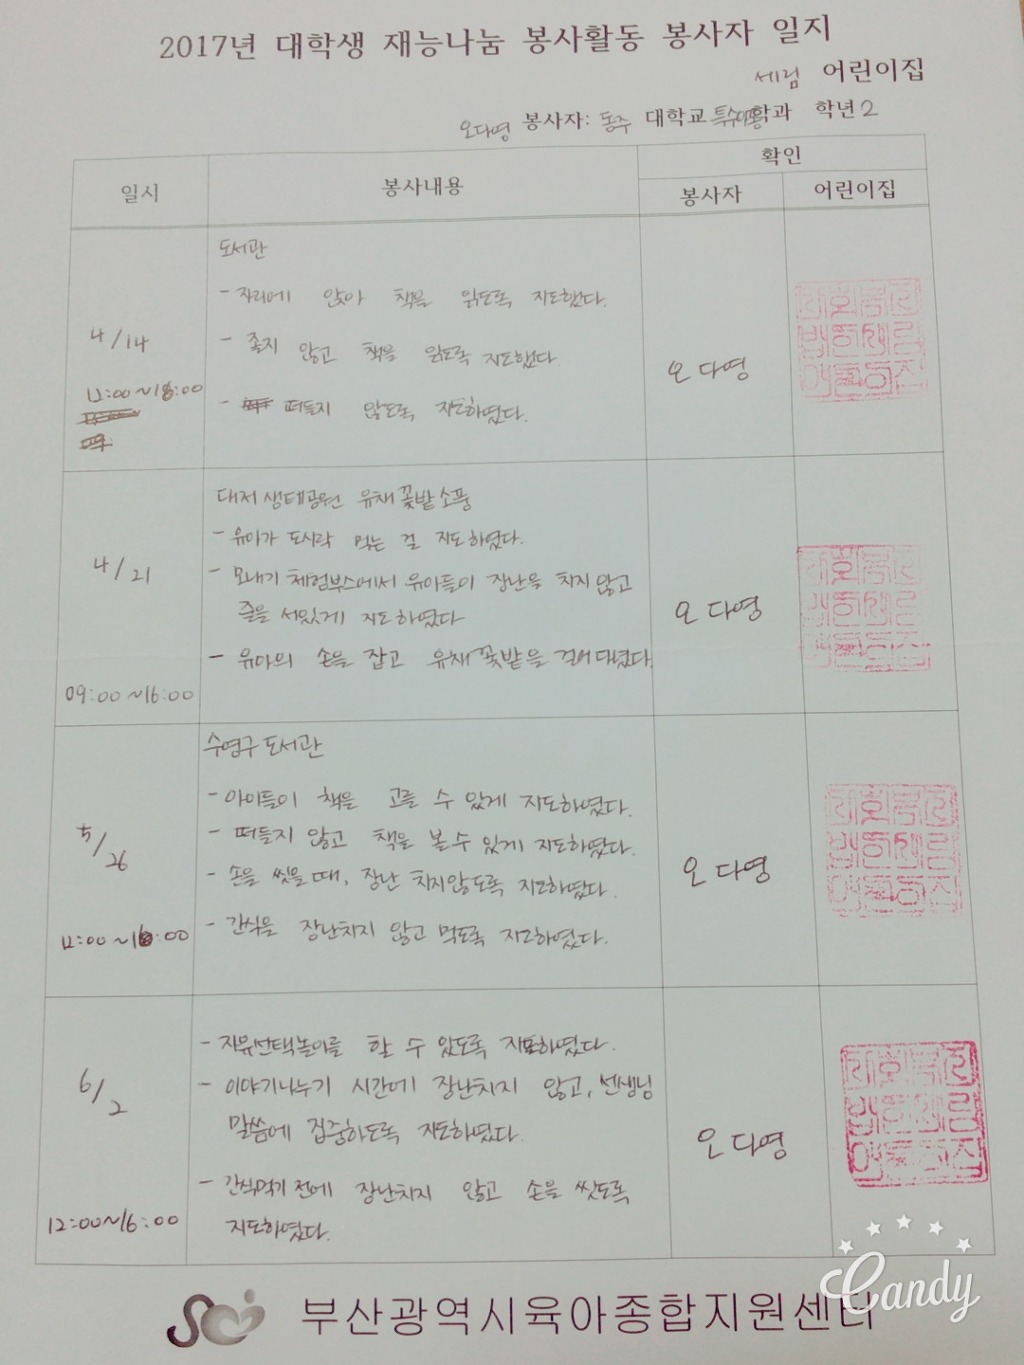 2017년 대학생 재능나눔 봉사활동 봉사자 일지
세림 어린이집
오다영 봉사자: 동주 대학교 학과 학년 2
일시 봉사내용 확인
봉사자 어린이집
4/14
12:00~16:00
도서관
- 자리에 앉아 책을 읽도록 지도했다.
- 졸지 않고 책을 읽도록 지도했다.
- 떠들지 않도록 지도하였다.
오다영
4/21
09:00~16:00
대저 생태공원 유채꽃밭 소풍
- 유아가 도시락 먹는 걸 지도하였다.
- 모내기 체험부스에서 유아들이 장난을 치지 않고
줄을 서있게 지도하였다
- 유아의 손을 잡고 유채꽃밭을 걸어다녔다
오다영
5/26
12:00~16:00
수영구 도서관
- 아이들이 책을 고를 수 있게 지도하였다.
- 떠들지 않고 책을 볼 수 있게 지도하였다.
- 손을 씻을 때, 장난 치지않도록 지도하였다.
- 간식을 장난치지 않고 먹도록 지도하였다.
오다영
6/2
12:00~16:00
- 자유선택놀이를 할 수 있도록 지도하였다.
- 이야기나누기 시간에 장난치지 않고, 선생님
말씀에 집중하도록 지도하였다.
- 간식먹기 전에 장난치지 않고 손을 씻도록
지도하였다.
오다영
부산광역시육아종합지원센터
Candy